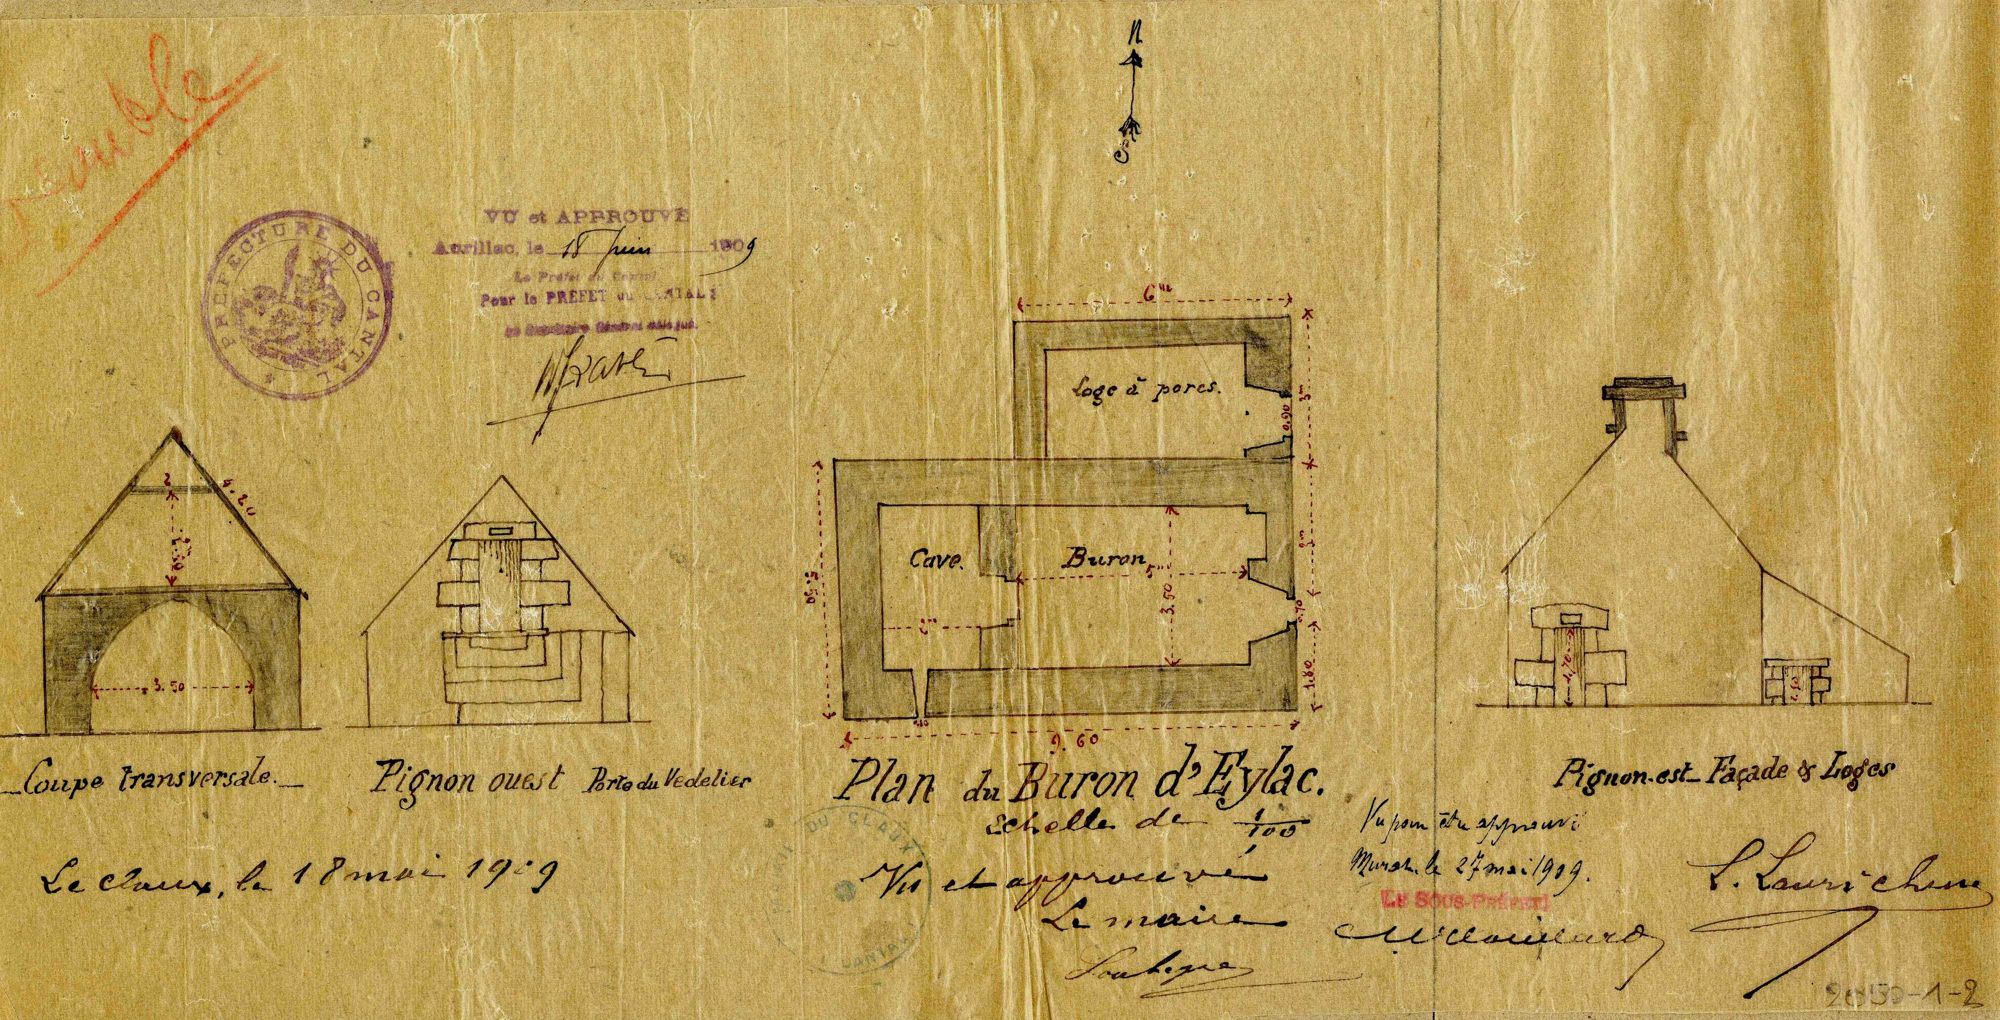 Double
N
S
PRÉFECTURE DU CANTAL
VU et APPROUVÉ
Aurillac, le 18 Juin 1909
Le Préfet du Cantal
Pour le PRÉFET du CANTAL :
Le Secrétaire Général délégué.
2
4.20
3.50
Coupe transversale.
Pignon ouest Porte du Vedelier
6m
3m
Loge à porcs.
0,90
Cave.
Buron
5m
3.50
2m
5.50
3m
0.70
1.80
9.60
Plan du Buron d'Eylac.
Echelle de 1/100
1,70
Pignon-est_ Façade & Loges
Le Claux, le 18 mai 1909
DU CLAUX
CANTAL
Vu et approuvé
Le maire
Vu pour être approuvé
Murat, le 27 mai 1909.
LE SOUS-PRÉFET
2050-1-2